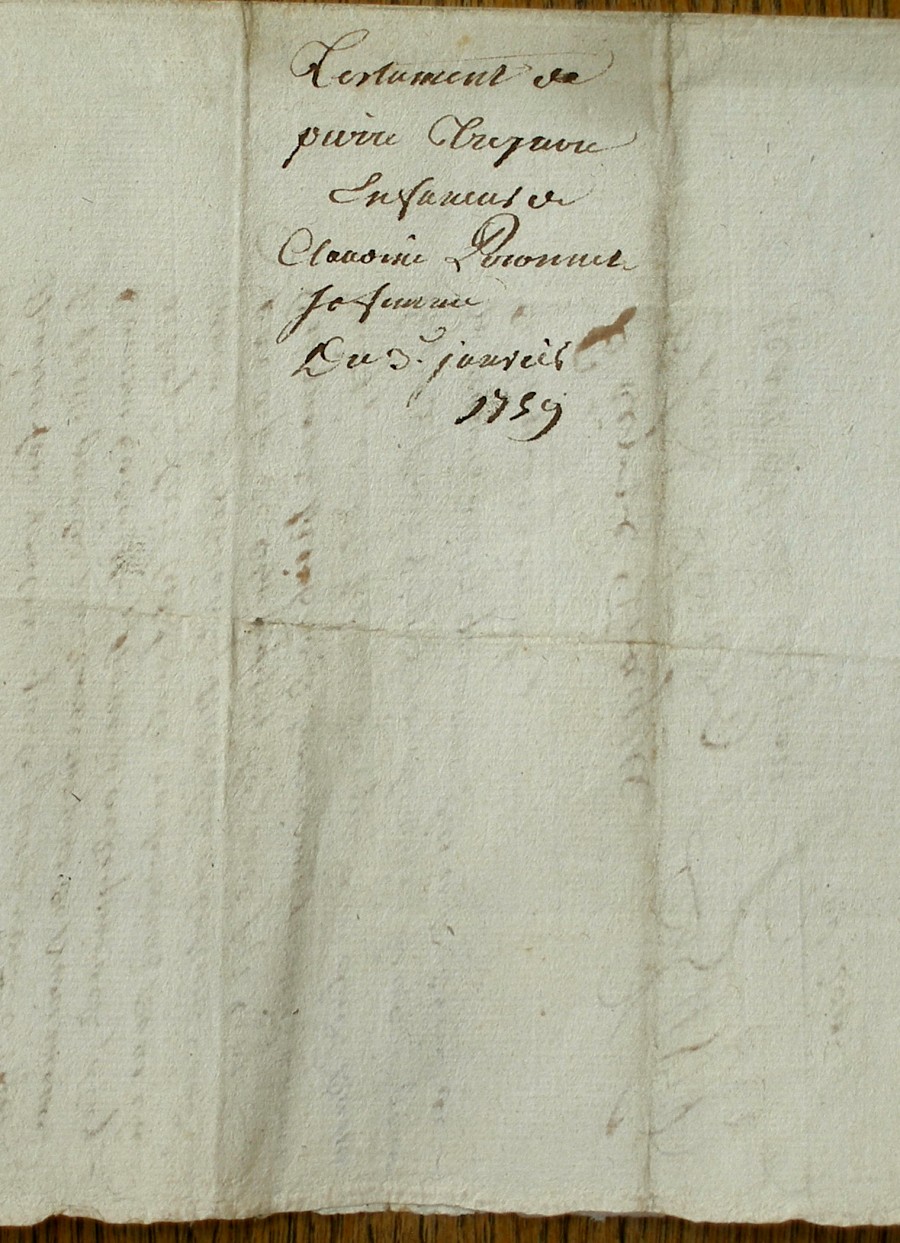 Testament de
pierre Treynne
En faveur de
Claudine Peronnet
sa femme
Du 3e janvier
1759